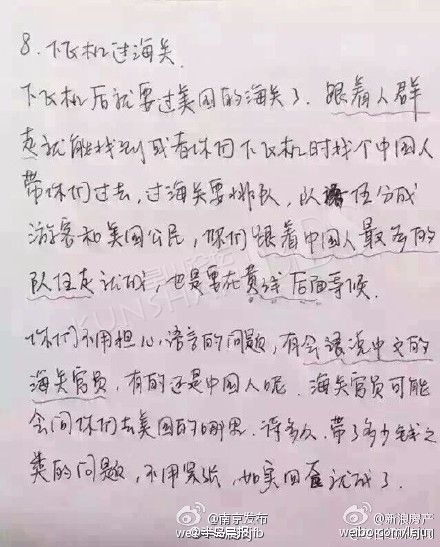 8. 下飞机过海关.
下飞机后就要过美国的海关了. 跟着人群
走就能找到或者你们下飞机时找个中国人
带你们过去, 过海关要排队, 队伍分成
游客和美国公民, 你们跟着中国人最多的
队伍走就成, 也是要在黄线后面等候.
你们不用担心语言的问题, 有会说中文的
海关官员, 有的还是中国人呢. 海关官员可能
会问你们去美国的哪里. 待多久, 带了多少钱之
类的问题, 不用紧张, 如实回答就成了.
@南京发布
@新浪房产